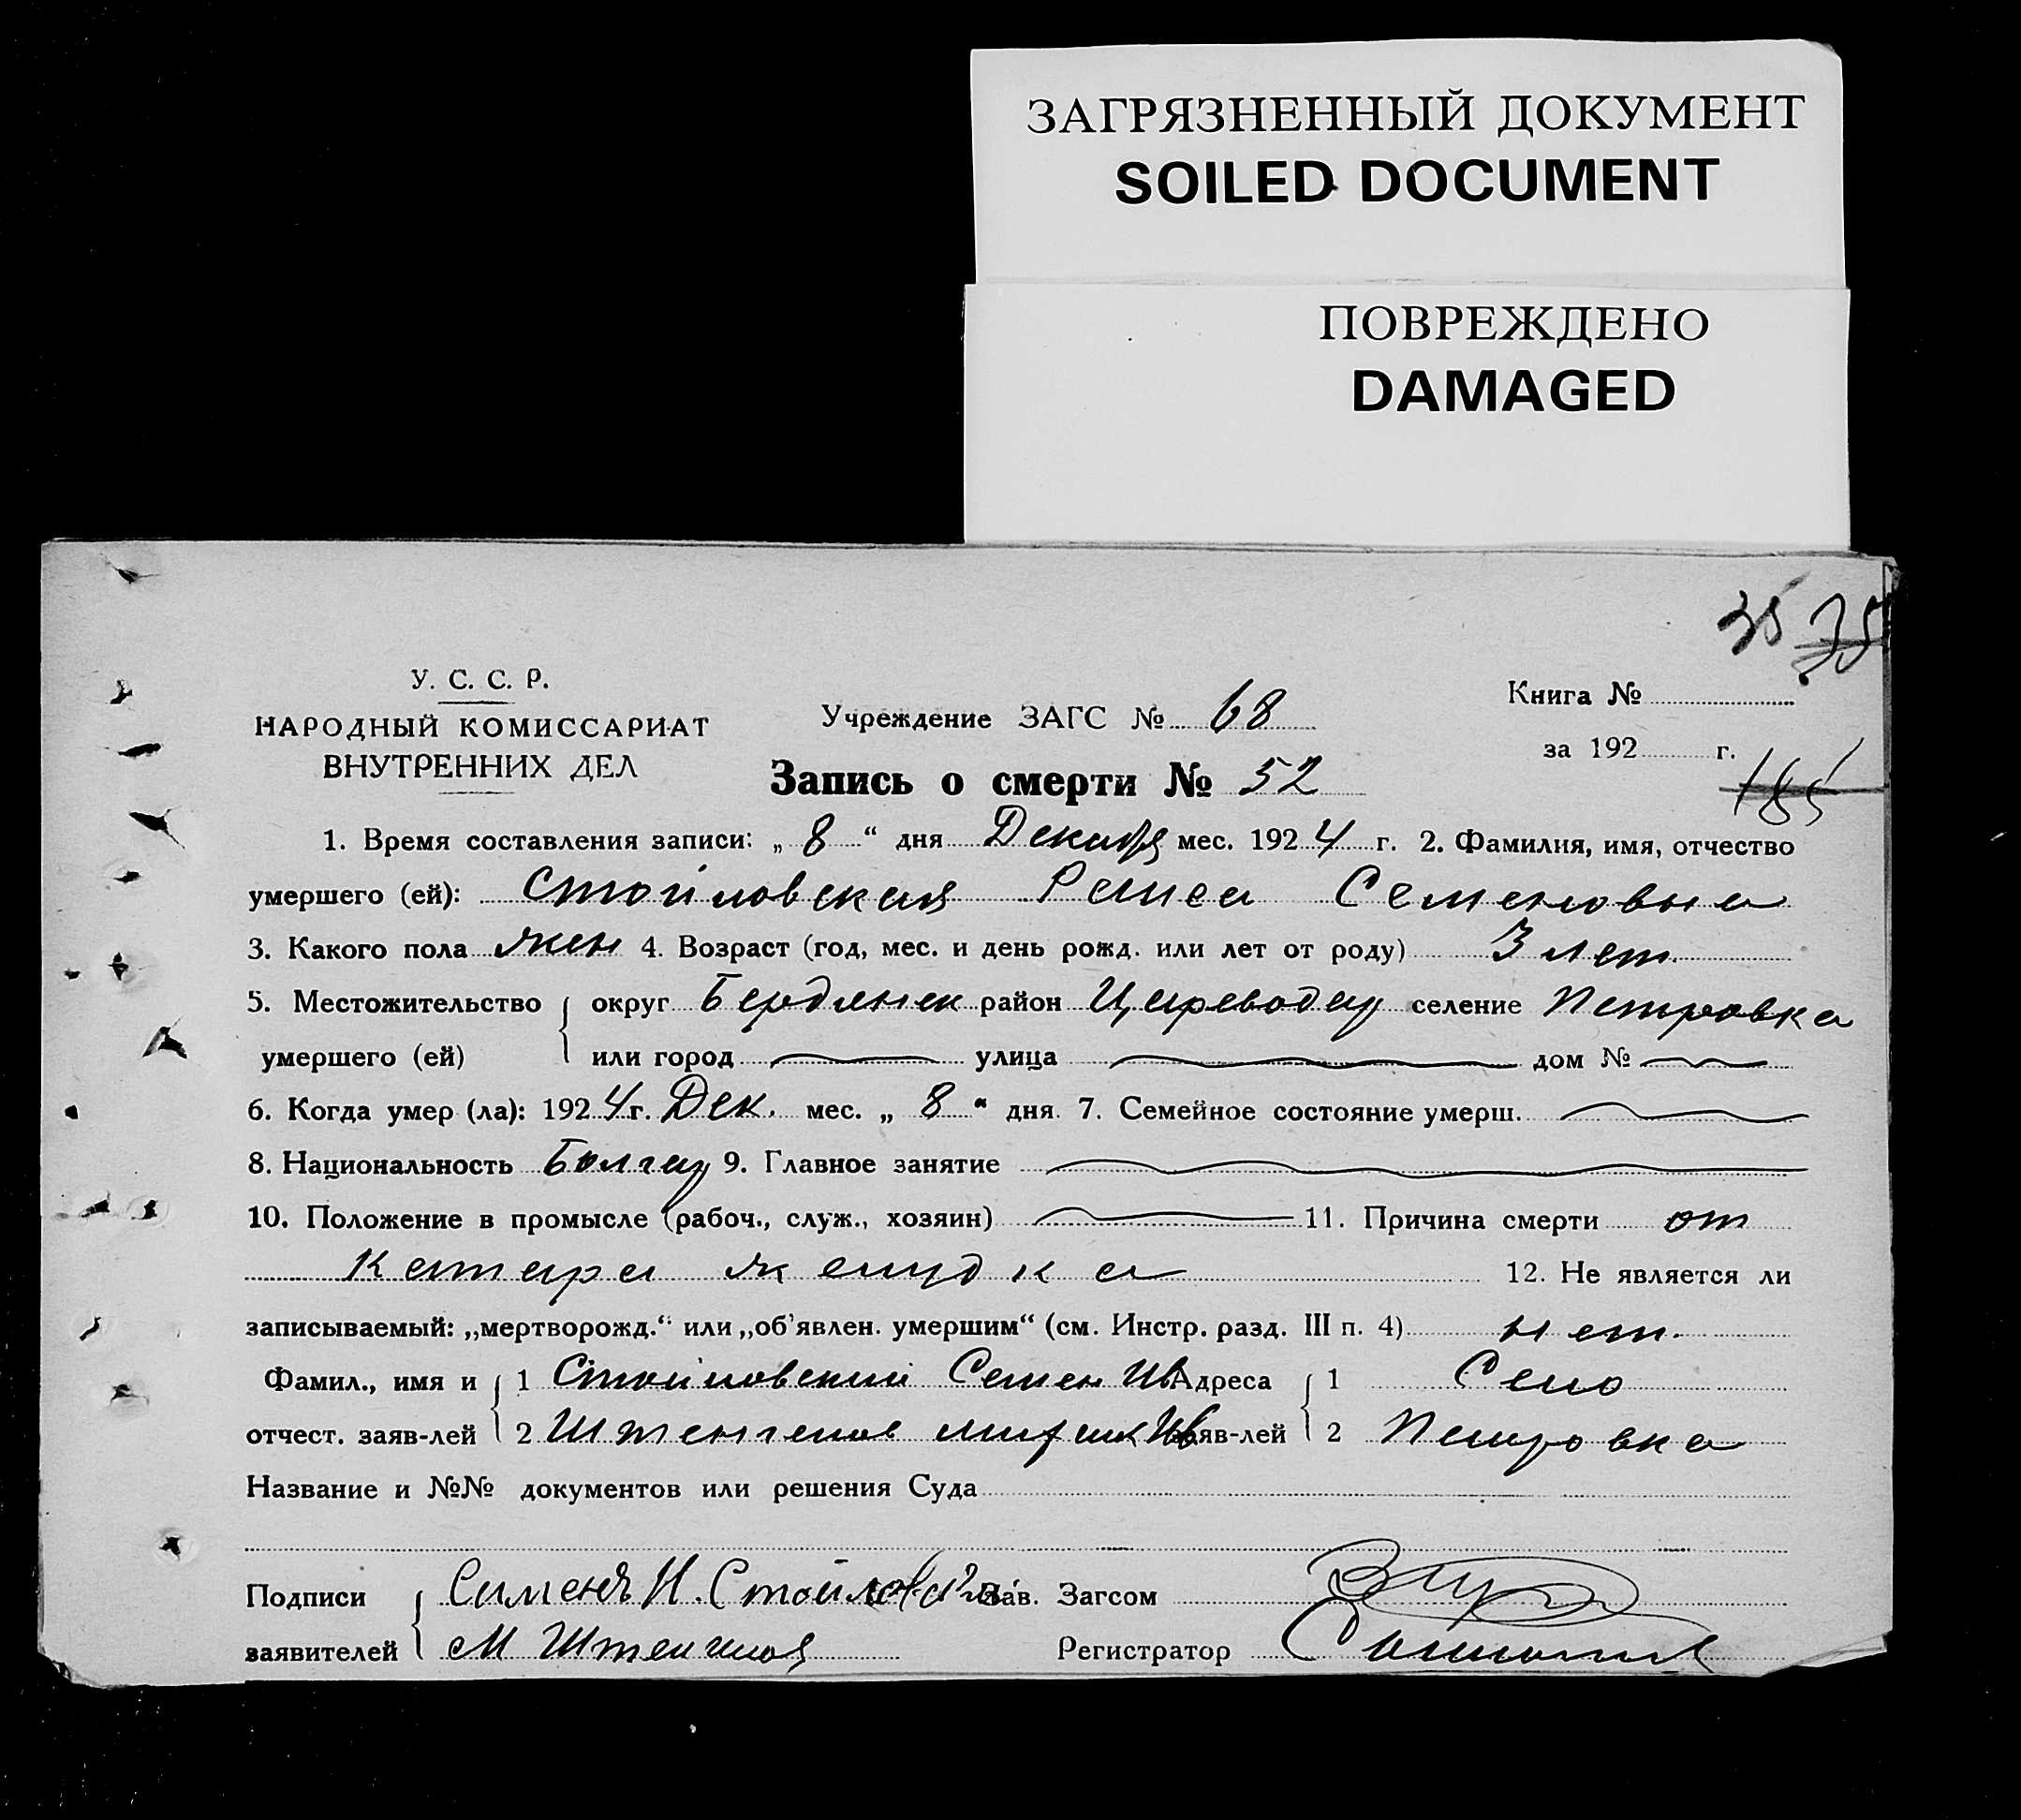 ЗАГРЯЗНЕННЫЙ ДОКУМЕНТ
SOILED DOCUMENT
ПОВРЕЖДЕНО
DAMAGED
35 35
У. С. С. Р.
НАРОДНЫЙ КОМИССАРИАТ
ВНУТРЕННИХ ДЕЛ
Учреждение ЗАГС № 68
Книга №
за 192 г.
185
Запись о смерти № 52
1. Время составления записи: „ 8 “ дня Декабря мес. 1924 г. 2. Фамилия, имя, отчество
умершего (ей): Стойловская Раиса Семеновна
3. Какого пола жен 4. Возраст (год, мес. и день рожд. или лет от роду) 3 лет.
5. Местожительство округ Бердянск район Цареводар селение Петровка
умершего (ей) или город улица дом №
6. Когда умер (ла): 1924 г. Дек. мес. „ 8 “ дня 7. Семейное состояние умерш.
8. Национальность Болгар 9. Главное занятие
10. Положение в промысле (рабоч., служ., хозяин) 11. Причина смерти от
катара желудка 12. Не является ли
записываемый: „мертворожд.“ или „об’явлен. умершим“ (см. Инстр. разд. III п. 4) нет.
Фамил., имя и 1 Стойловский Семен Ив Адреса 1 Село
отчест. заяв-лей 2 Ив заяв-лей 2 Петровка
Название и №№ документов или решения Суда
Подписи Зав. Загсом
заявителей М Регистратор